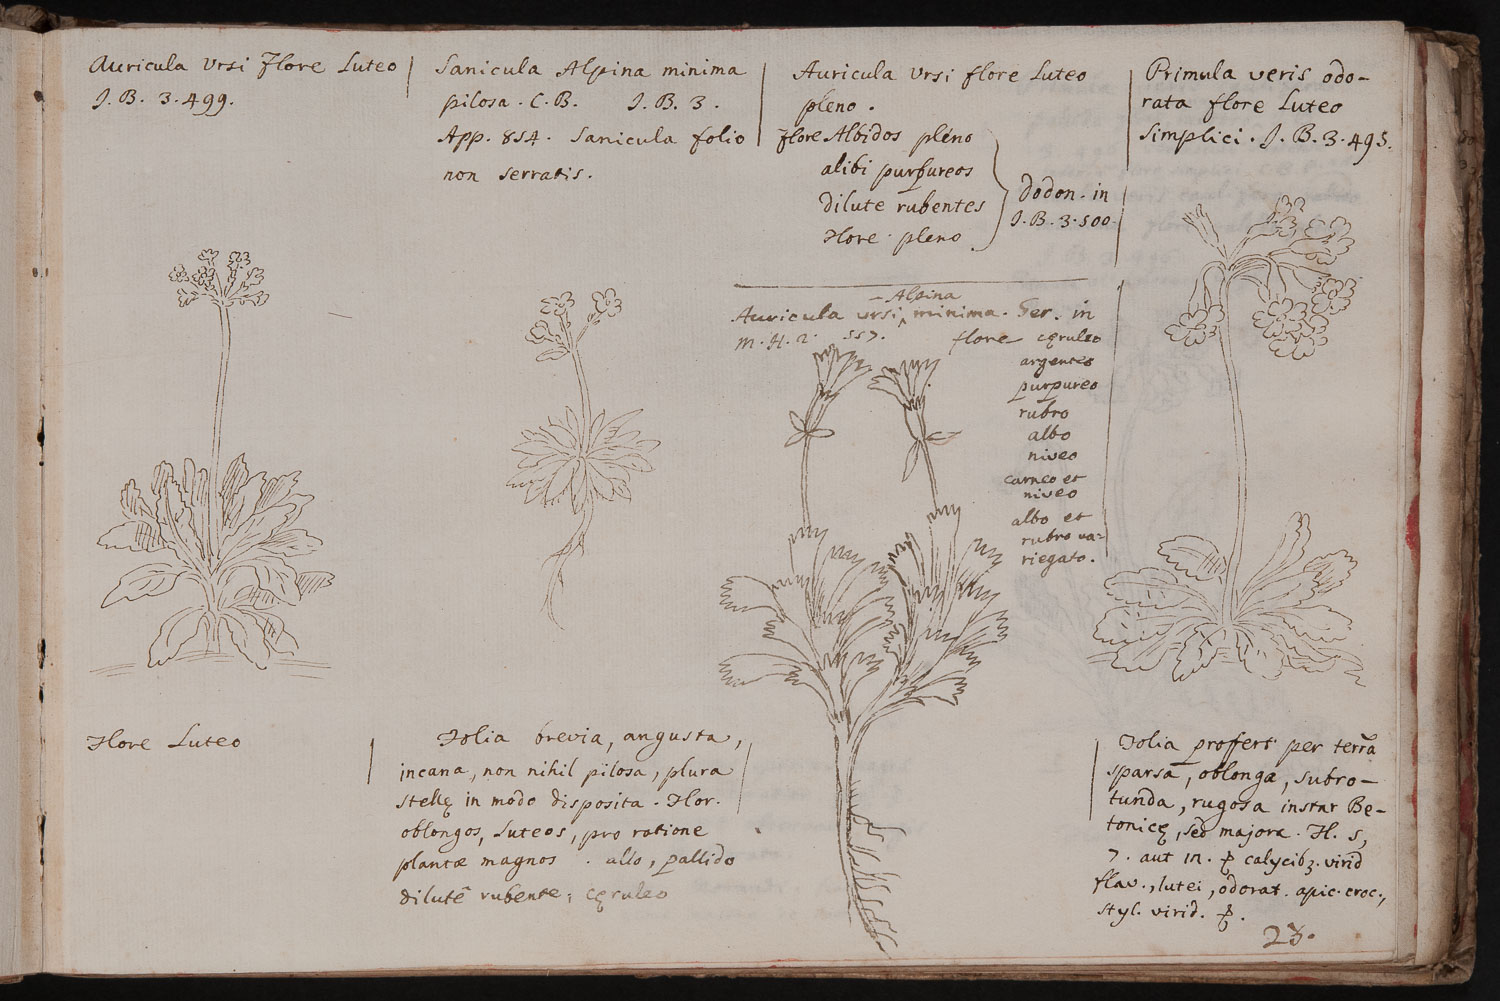 Auricula Ursi Flore Luteo
J. B. 3. 499.
Sanicula Alpina minima
pilosa. C. B. J. B. 3.
App. 854. Sanicula folio
non serratis.
Auricula Ursi flore Luteo
pleno.
flore Albidos pleno
alibi purpureos
dilute rubentes
flore pleno
Dodon. in
J. B. 3. 500.
Primula veris odo-
rata flore Luteo
simplici. J. B. 3. 495.
Alpina
Auricula ursi ‸ minima. Ger. in
M. H. 2. 557. flore cęruleo
argenteo
purpureo
rubro
albo
niveo
carneo et
niveo
albo et
rubro va=
riegato.
Flore Luteo
Folia brevia, angusta,
incana, non nihil pilosa, plura
stellę in modo disposita. Flor.
oblongos, Luteos, pro ratione
plantæ magnos. albo, pallido
dilutē rubente, cęruleo
Folia proffert per terrā
sparsa, oblonga, subro-
tunda, rugosa instar Be-
tonicę, sed majora. Fl. 5,
7. aut 12. calycibꝫ virid
flav., lutei, odorat. apic. croc.,
styl. virid.
23.